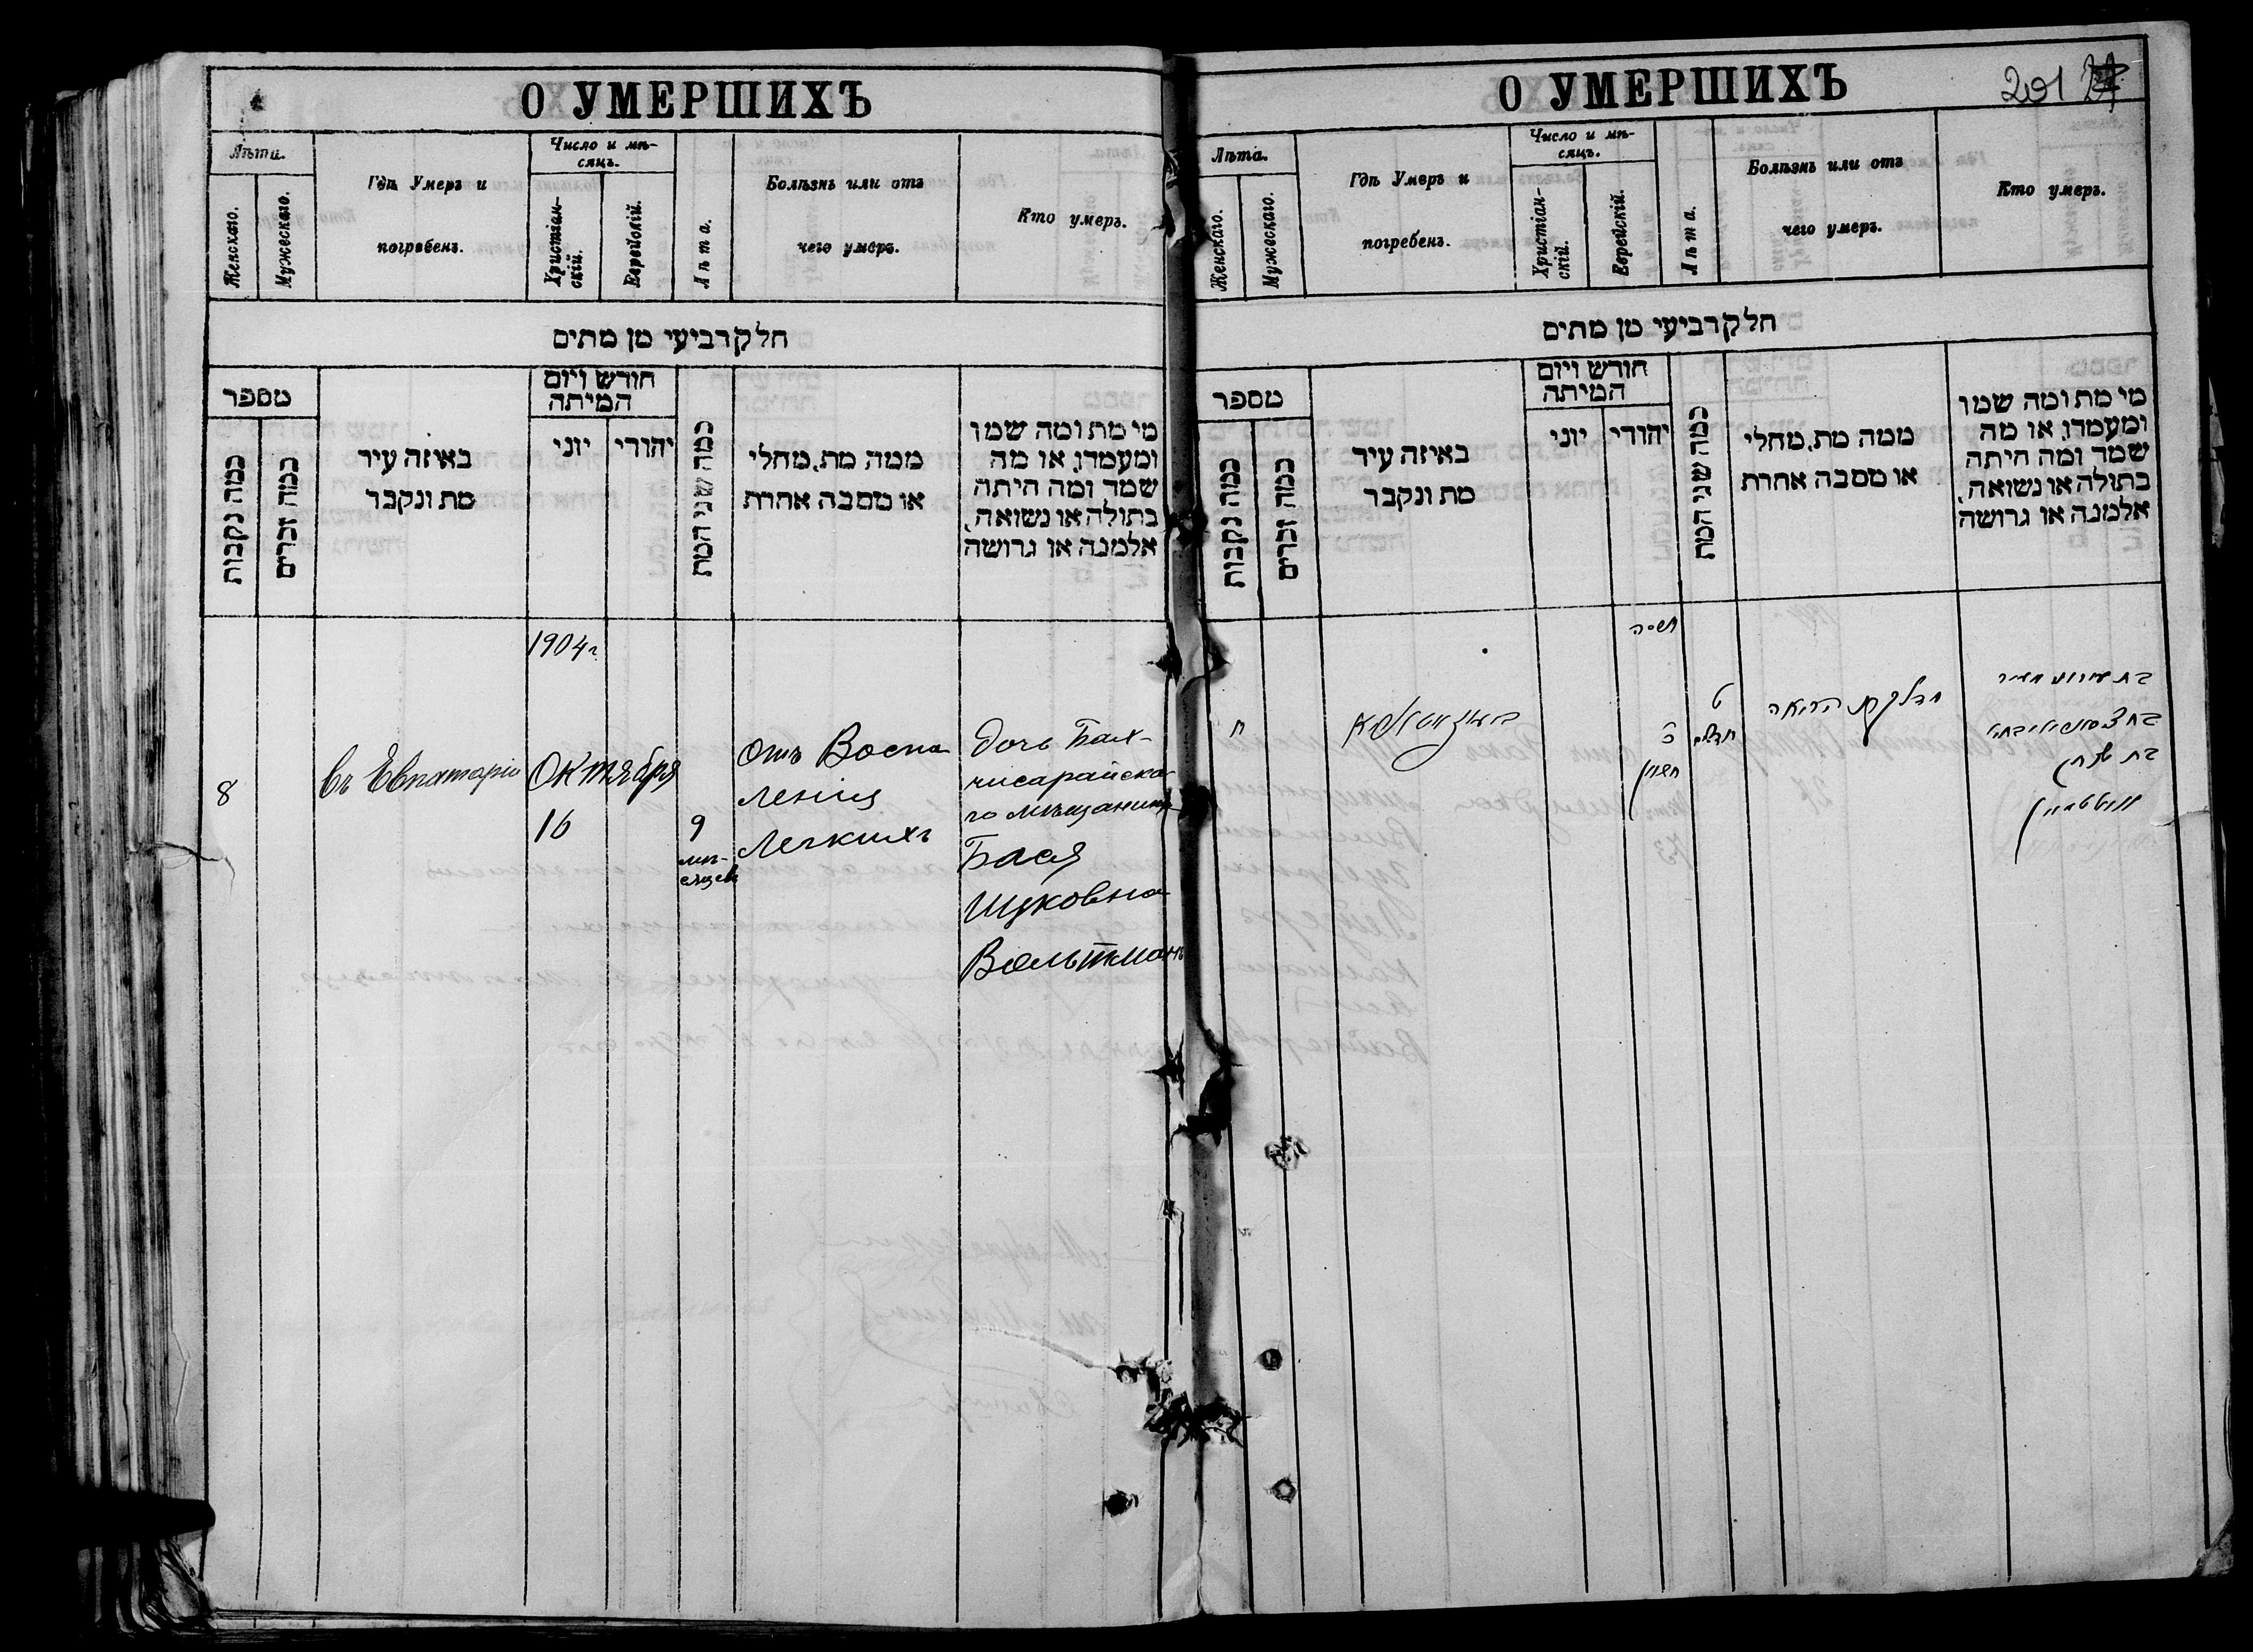 О УМЕРШИХЪ
Лѣта.
Женскаго.
Мужескаго.
Гдѣ Умеръ и
погребенъ.
Число и мѣ-
сяцъ.
Христіан-
скій.
Еврейскій.
Лѣта.
Болѣзнь или отъ
чего умеръ.
Кто умеръ.
חלק רביעי מן מתים
מספר
כמה נקבות
כמה זכרים
באיזה עיר
מת ונקבר
חורש ויום
המיתה
יוני
יהודי
כמה שני המת
ממה מת, מחלי
או מסבה אחרת
מי מת ומה שמו
ומעמדו, או מה
שמד ומה היתה
בתולה או נשואה,
אלמנה או גרושה
1904 г.
8
въ Евпаторіи
Октября
16
9
мѣ-
сяцевъ
отъ Воспа
ленія
Легкихъ
Дочь Бах-
чисарайска
го мѣщанина
Бася
Ицковна
Вольтманъ
О УМЕРШИХЪ
201
Лѣта.
Женскаго.
Мужескаго.
Гдѣ Умеръ и
погребенъ.
Число и мѣ-
сяцъ.
Христіан-
скій.
Еврейскій.
Лѣта.
Болѣзнь или отъ
чего умеръ.
Кто умеръ.
חלק רביעי מן מתים
מספר
כמה נקבות
כמה זכרים
באיזה עיר
מת ונקבר
חורש ויום
המיתה
יוני
יהודי
כמה שני המת
ממה מת, מחלי
או מסבה אחרת
מי מת ומה שמו
ומעמדו, או מה
שמד ומה היתה
בתולה או נשואה,
אלמנה או גרושה
ח
חשון
ט
הריאה